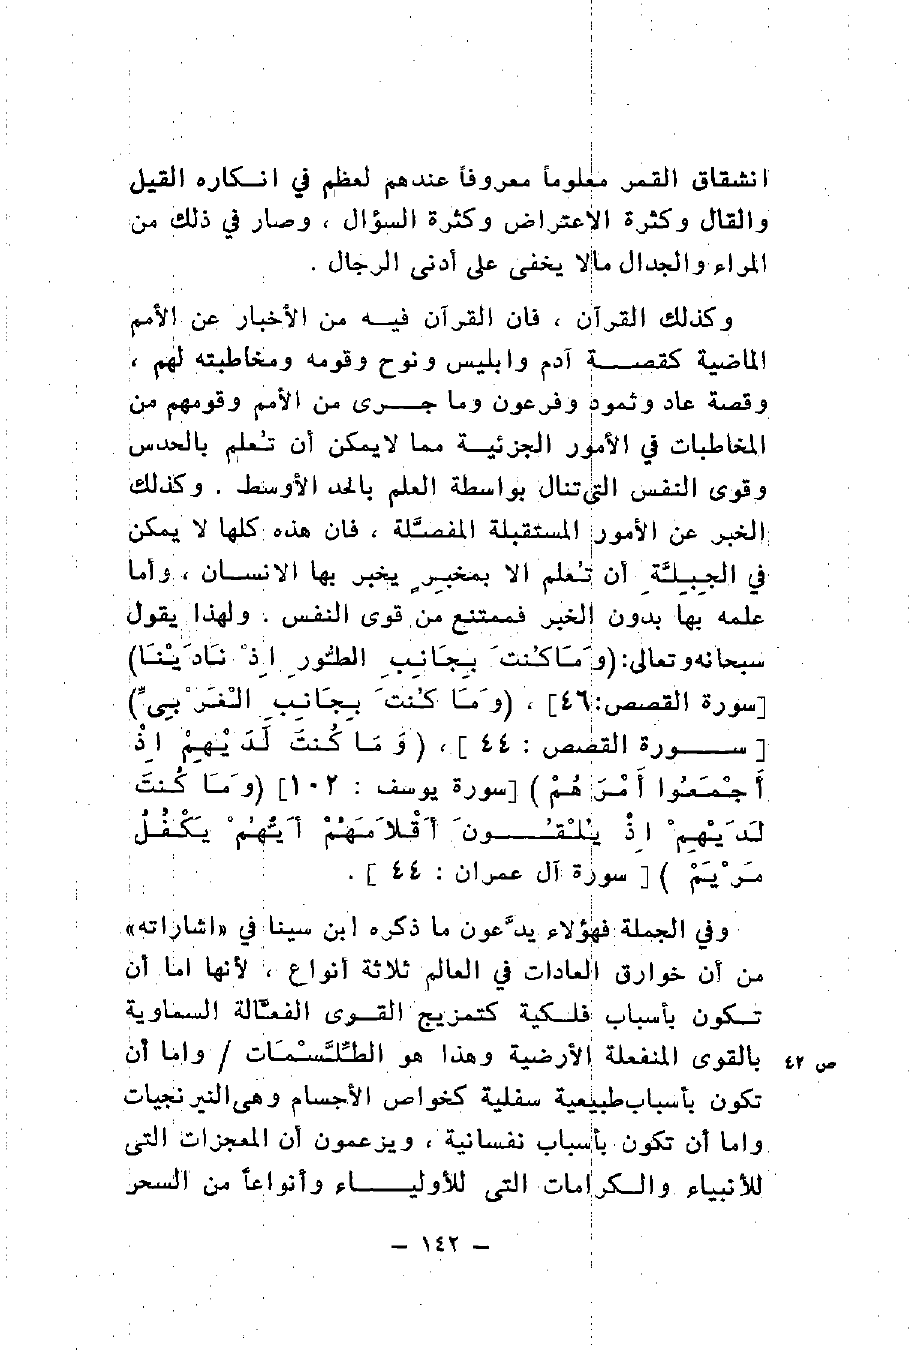 انشقاق القمر معلوماً معروفاً عندهم لعظم في انكاره القيل
والقال وكثرة الاعتراض وكثرة السؤال ، وصار في ذلك من
المراء والجدال مالا يخفى على أدنى الرجال .
وكذلك القرآن ، فان القرآن فيه من الأخبار عن الأمم
الماضية كقصة آدم وابليس ونوح وقومه ومخاطبته لهم ،
وقصة عاد وثمود وفرعون وما جرى من الأمم وقومهم من
المخاطبات في الأمور الجزئية مما لايمكن أن تُعلم بالحدس
وقوى النفس التي تنال بواسطة العلم بالحد الأوسط . وكذلك
الخبر عن الأمور المستقبلة المفصَّلة ، فان هذه كلها لا يمكن
في الجبلَّة أن تُعلم الا بمخبرٍ يخبر بها الانسان ، وأما
علمه بها بدون الخبر فممتنع من قوى النفس . ولهذا يقول
سبحانه وتعالى : (وَمَا كُنتَ بِجَانِبِ الطُّورِ اِذْ نَادَيْنَا)
[سورة القصص : ٤٦] ، (وَمَا كُنتَ بِجَانِبِ الْغَرْبِيِّ)
[ سورة القصص : ٤٤ ] ، ( وَمَا كُنتَ لَدَيْهِمْ اِذْ
أَجْمَعُوا أَمْرَهُمْ ) [سورة يوسف : ١٠٢] (وَمَا كُنتَ
لَدَيْهِمْ اِذْ يُلْقُونَ أَقْلَامَهُمْ أَيُّهُمْ يَكْفُلُ
مَرْيَمَ ) [ سورة آل عمران : ٤٤ ] .
وفي الجملة فهؤلاء يدَّعون ما ذكره ابن سينا في «اشاراته»
من أن خوارق العادات في العالم ثلاثة أنواع ، لأنها اما أن
تكون بأسباب فلكية كتمزيج القوى الفعَّالة السماوية
بالقوى المنفعلة الأرضية وهذا هو الطلَّسْمَات / واما أن ص ٤٢
تكون بأسباب طبيعية سفلية كخواص الأجسام وهي النيرنجيات
واما أن تكون بأسباب نفسانية ، ويزعمون أن المعجزات التي
للأنبياء والكرامات التي للأولياء وأنواعاً من السحر
— ١٤٢ —